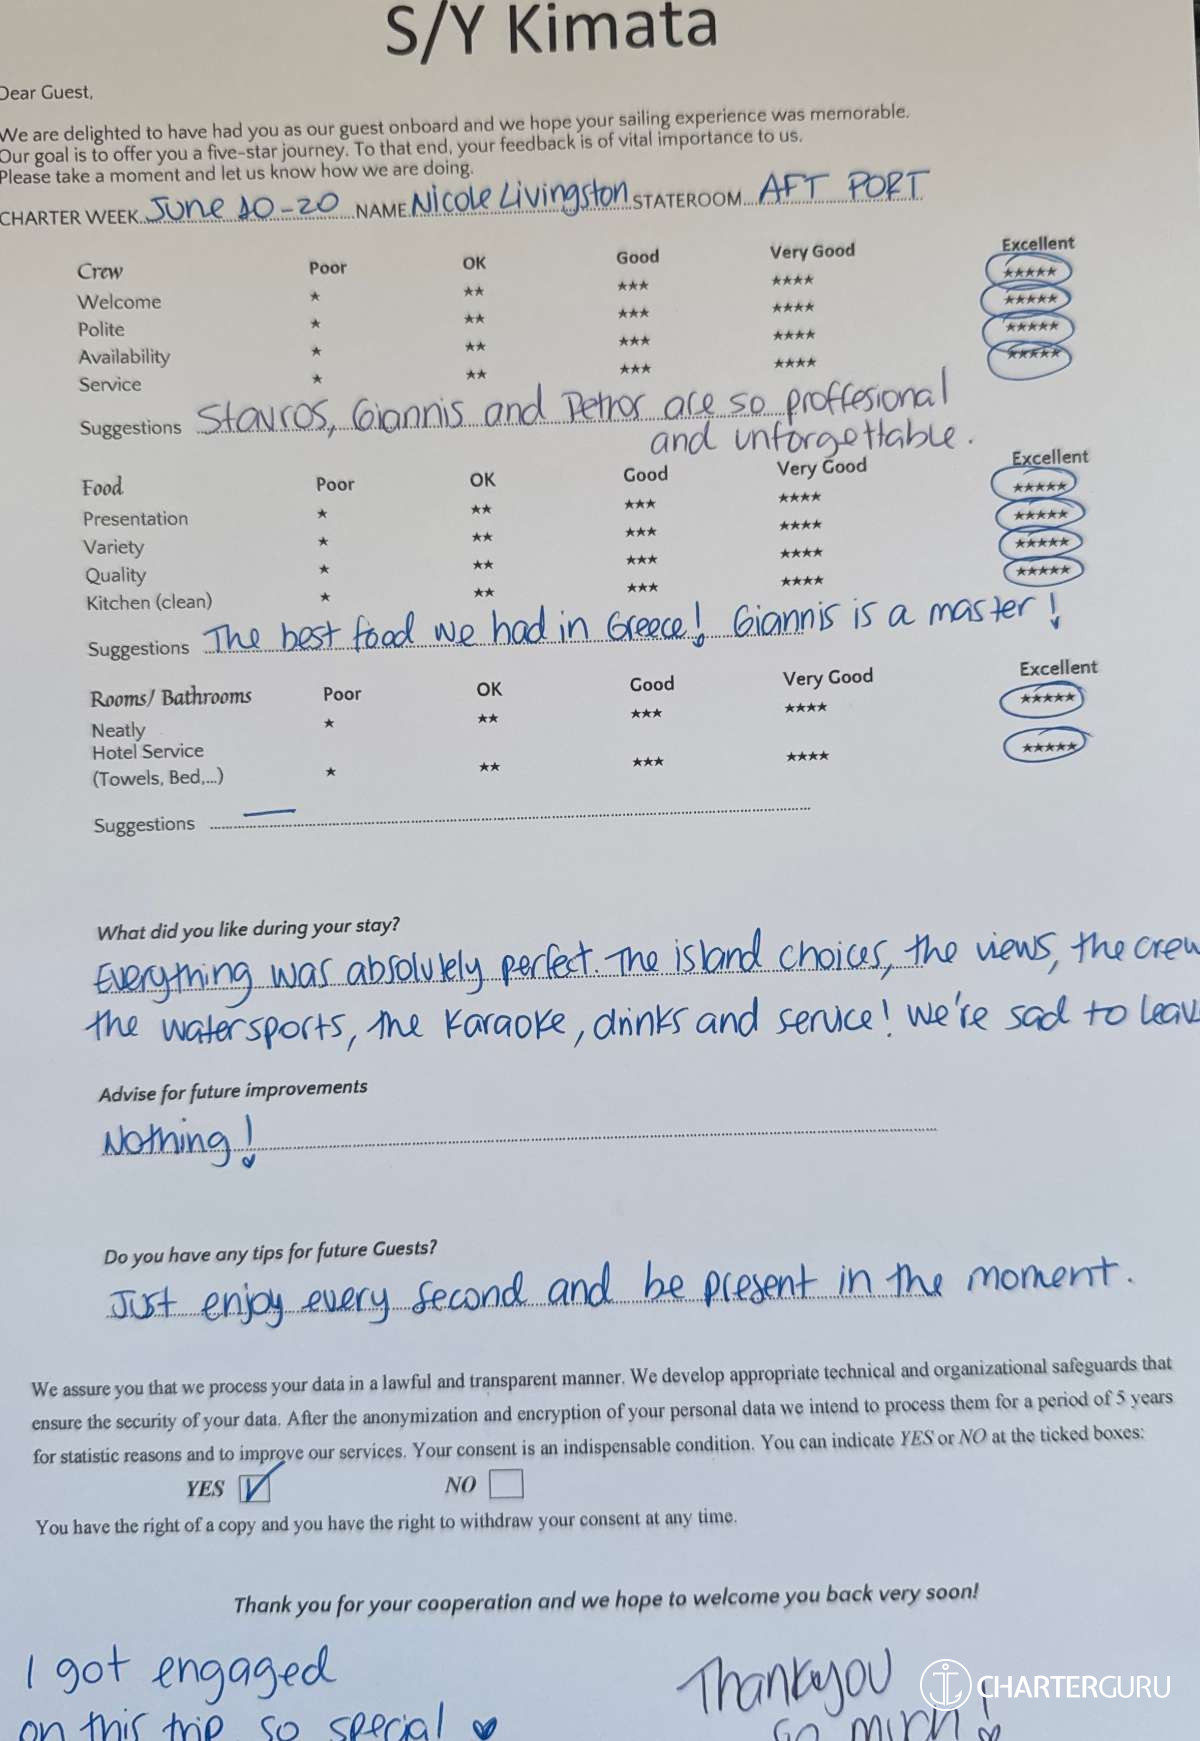 S/Y Kimata
Dear Guest,
We are delighted to have had you as our guest onboard and we hope your sailing experience was memorable.
Our goal is to offer you a five-star journey. To that end, your feedback is of vital importance to us.
Please take a moment and let us know how we are doing.
CHARTER WEEK June 10-20 NAME Nicole Livingston STATEROOM AFT PORT
Crew Poor OK Good Very Good Excellent
Welcome ★ ★★ ★★★ ★★★★ ★★★★★
Polite ★ ★★ ★★★ ★★★★ ★★★★★
Availability ★ ★★ ★★★ ★★★★ ★★★★★
Service ★ ★★ ★★★ ★★★★ ★★★★★
Suggestions Stavros, Giannis and Petros are so proffesional
and unforgettable.
Food Poor OK Good Very Good Excellent
Presentation ★ ★★ ★★★ ★★★★ ★★★★★
Variety ★ ★★ ★★★ ★★★★ ★★★★★
Quality ★ ★★ ★★★ ★★★★ ★★★★★
Kitchen (clean) ★ ★★ ★★★ ★★★★ ★★★★★
Suggestions The best food we had in Greece! Giannis is a master!
Rooms/ Bathrooms Poor OK Good Very Good Excellent
Neatly ★ ★★ ★★★ ★★★★ ★★★★★
Hotel Service
(Towels, Bed,...) ★ ★★ ★★★ ★★★★ ★★★★★
Suggestions —
What did you like during your stay?
Everything was absolutely perfect. The island choices, the views, the crew
the watersports, the karaoke, drinks and service! We're sad to leav
Advise for future improvements
Nothing!
Do you have any tips for future Guests?
Just enjoy every second and be present in the moment.
We assure you that we process your data in a lawful and transparent manner. We develop appropriate technical and organizational safeguards that
ensure the security of your data. After the anonymization and encryption of your personal data we intend to process them for a period of 5 years
for statistic reasons and to improve our services. Your consent is an indispensable condition. You can indicate YES or NO at the ticked boxes:
YES ☑ NO ☐
You have the right of a copy and you have the right to withdraw your consent at any time.
Thank you for your cooperation and we hope to welcome you back very soon!
I got engaged
on this trip so special ♥
Thank you
so much! ♡
CHARTERGURU